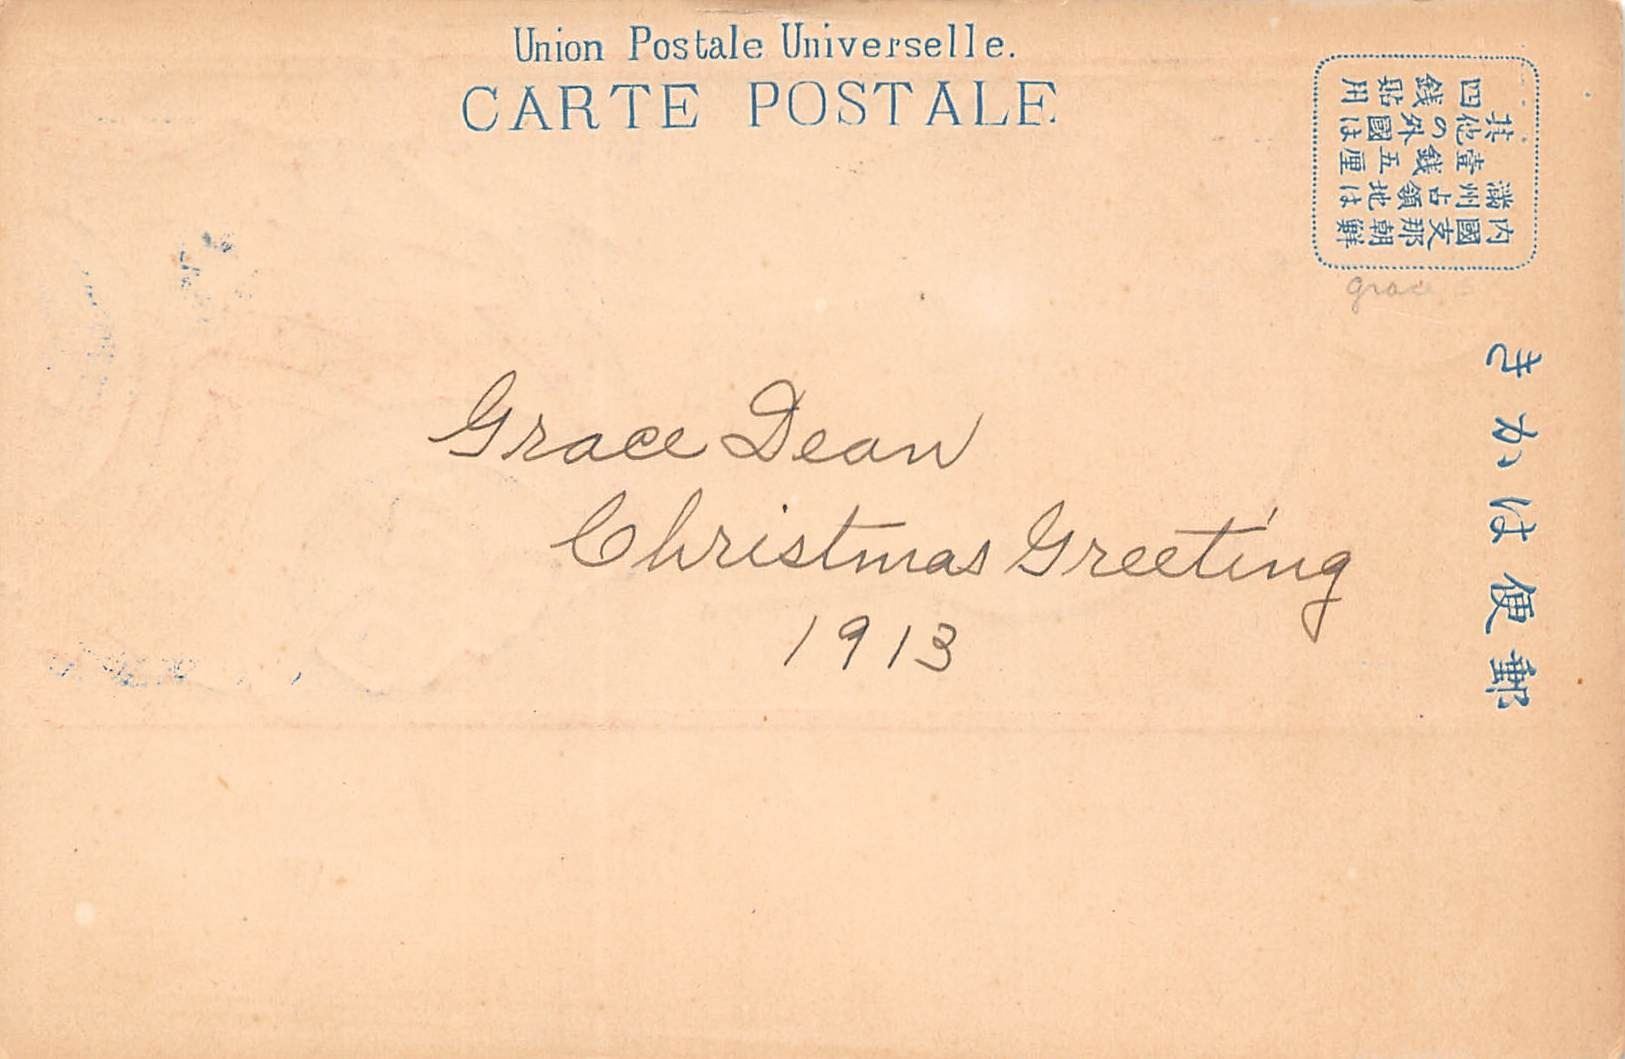 Union Postale Universelle.
CARTE POSTALE
内國支那朝鮮
滿州占領地は
壹銭五厘
其他の外國は
四銭貼用
grace
郵便はかき
Grace Dean
Christmas Greeting
1913